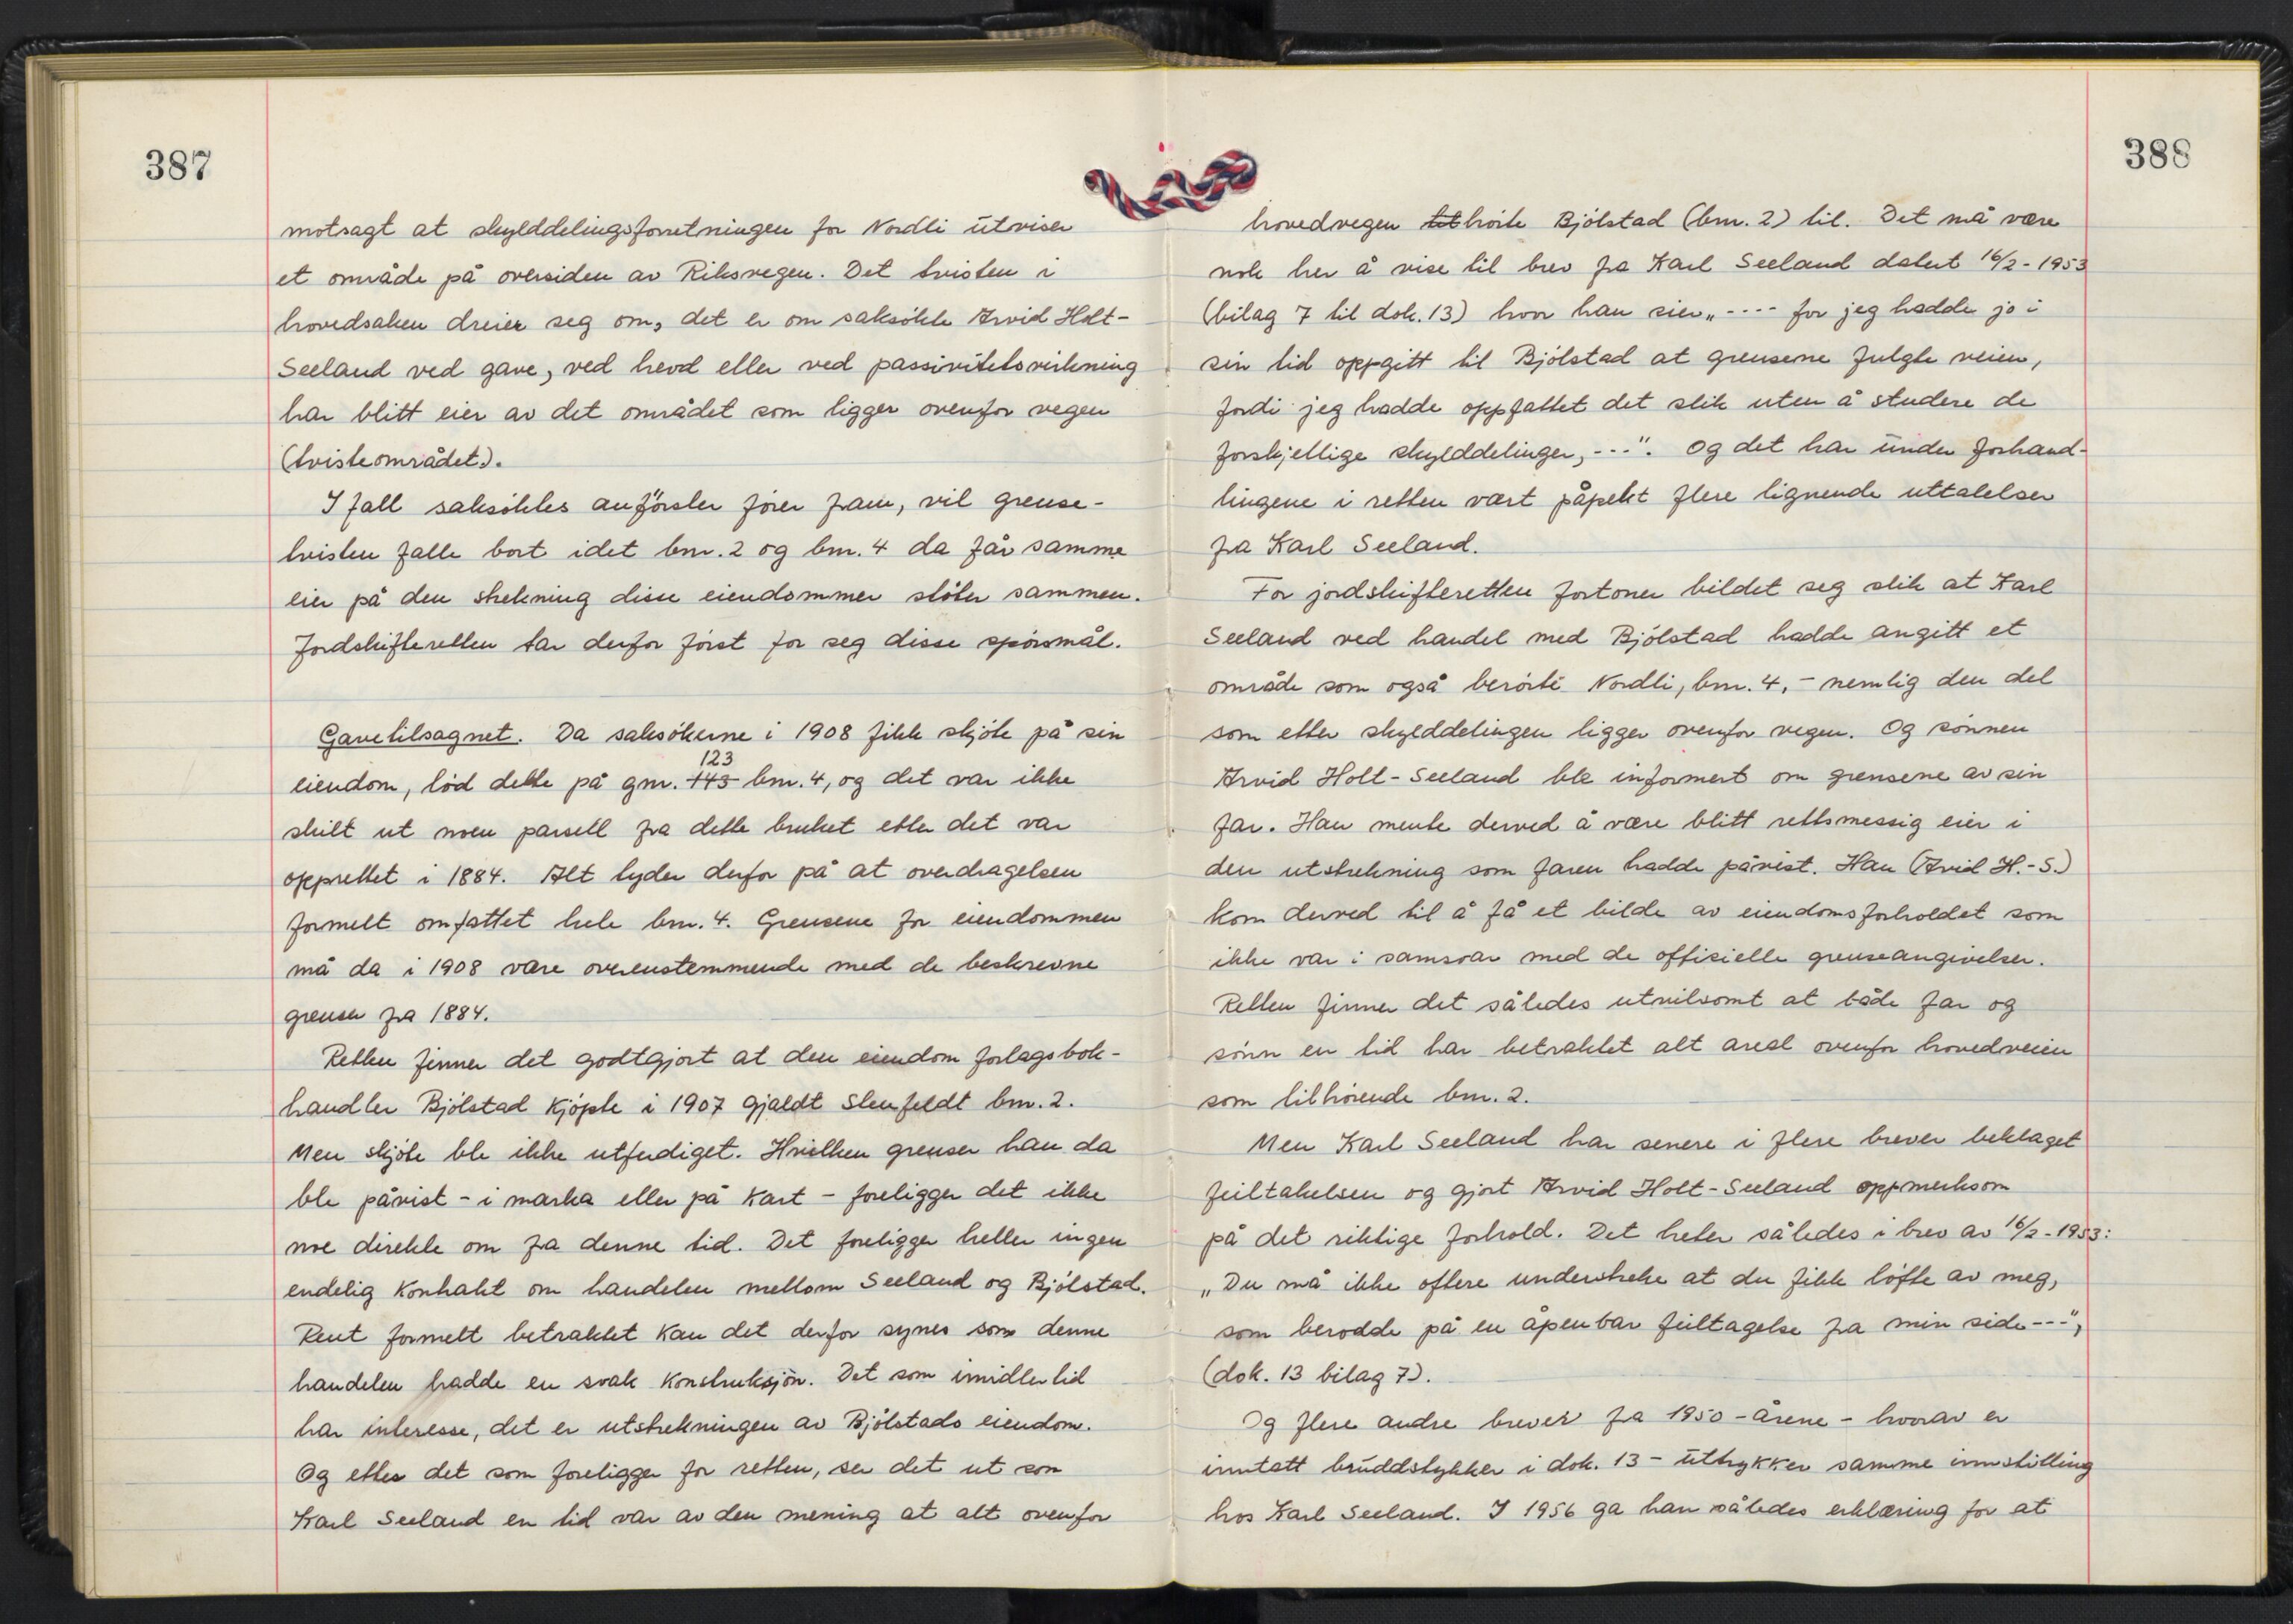 387
motsagt at skylddelingsforretningen for Nordli utviser
et område på oversiden av Riksvegen. Det tvisten i
hovedsaken dreier seg om, det er om saksökte Arvid Holt-
Seeland ved gave, ved hevd eller ved passivitetsvirkning
har blitt eier av det området som ligger ovenfor vegen
(tvisteområdet).
I fall saksöktes anförsler förer fram, vil grense-
tvisten falle bort idet bnr. 2 og bnr. 4 da får samme
eier på den strekning disse eiendommer stöter sammen.
Jordskifteretten tar derfor först for seg disse spörsmål.
Gavetilsagnet. Da saksökerne i 1908 fikk skjöte på sin
123
eiendom, löd dette på gnr. 143 bnr. 4, og det var ikke
skilt ut noen parsell fra dette bruket etter det var
opprettet i 1884. Alt tyder derfor på at overdragelsen
formelt omfattet hele bnr. 4. Grensene for eiendommen
må da i 1908 være overenstemmende med de beskrevne
grenser fra 1884.
Retten finner det godtgjort at den eiendom forlagsbok-
handler Bjölstad kjöpte i 1907 gjaldt Stenfeldt bnr. 2.
Men skjöte ble ikke utferdiget. Hvilken grenser han da
ble påvist - i marka eller på kart - foreligger det ikke
noe direkte om fra denne tid. Det foreligger heller ingen
endelig kontrakt om handelen mellom Seeland og Bjölstad.
Rent formelt betraktet kan det derfor synes som denne
handelen hadde en svak konstruksjön. Det som imidlertid
har interesse, det er utstrekningen av Bjölstads eiendom.
Og etter det som foreligger for retten, ser det ut som
Karl Seeland en tid var av den mening at alt ovenfor
388
hovedvegen tit hörte Bjölstad (bnr. 2) til. Det må være
nok her å vise til brev fra Karl Seeland datert 16/2-1953
(bilag 7 til dok. 13) hvor han sier „---- for jeg hadde jo i
sin tid oppgitt til Bjölstad at grensene fulgte veien,
fordi jeg hadde oppfattet det slik uten å studere de
forskjellige skylddelinger, ---". Og det har under forhand-
lingene i retten vært påpekt flere lignende uttalelser
fra Karl Seeland.
For jordskifteretten fortoner bildet seg slik at Karl
Seeland ved handel med Bjölstad hadde angitt et
område som også berörte Nordli, bnr. 4, - nemlig den del
som etter skylddelingen ligger ovenfor vegen. Og sönnen
Arvid Holt-Seeland ble informert om grensene av sin
far. Han mente derved å være blitt rettsmessig eier i
den utstrekning som faren hadde påvist. Han (Arvid H.-S.)
kom derved til å få et bilde av eiendomsforholdet som
ikke var i samsvar med de offisielle grenseangivelser.
Retten finner det således utvilsomt at både far og
sönn en tid har betraktet alt areal ovenfor hovedveien
som tilhörende bnr. 2.
Men Karl Seeland har senere i flere brever beklaget
feiltakelsen og gjort Arvid Holt-Seeland oppmerksom
på det riktige forhold. Det heter således i brev av 16/2-1953:
„Du må ikke oftere understreke at du fikk löfte av meg,
som berodde på en åpenbar feiltagelse fra min side---",
(dok. 13 bilag 7).
Og flere andre brever fra 1950-årene - hvorav er
inntatt bruddstykker i dok. 13 - uttrykker samme innstilling
hos Karl Seeland. I 1956 ga han således erklæring for at